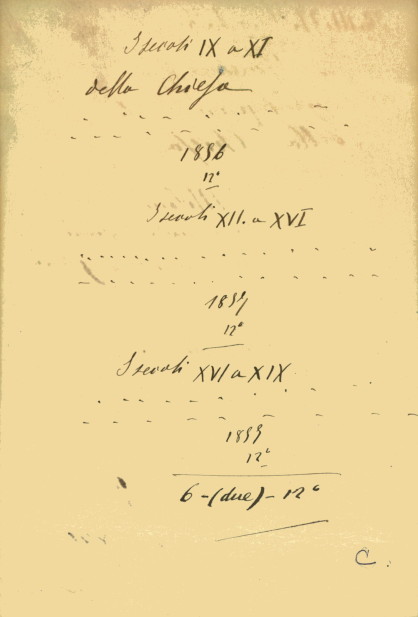 I secoli IX a XI
della Chiesa
1856
12°
I secoli XII. a XVI
12°
I secoli XVI a XIX
12°
6 - (due) - 12°
C.